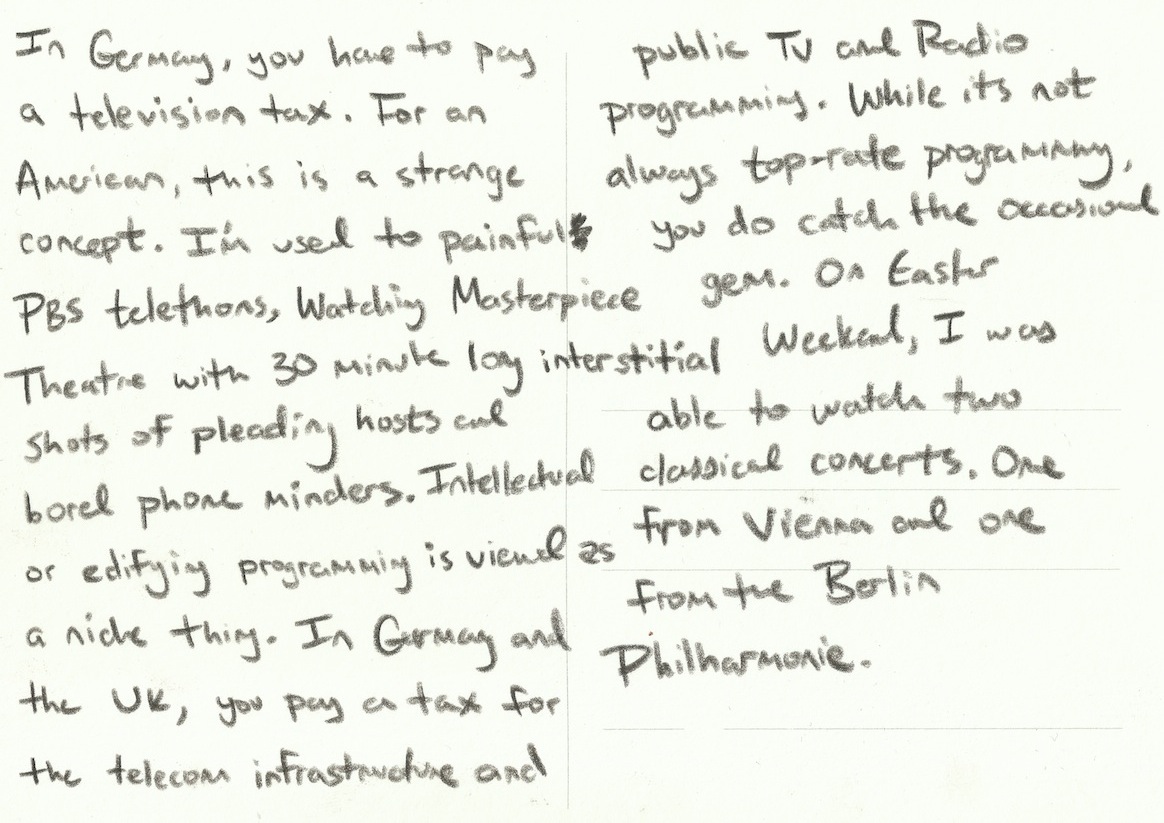 In Germany, you have to pay
a television tax. For an
American, this is a strange
concept. I'm used to painful
PBS telethons, Watching Masterpiece
Theatre with 30 minute long interstitial
shots of pleading hosts and
bored phone minders. Intellectual
or edifying programming is viewed as
a niche thing. In Germany and
the UK, you pay a tax for
the telecom infrastructure and
public TV and Radio
programming. While its not
always top-rate programming,
you do catch the occasional
gem. On Easter
Weekend, I was
able to watch two
classical concerts. One
from Vienna and one
from the Berlin
Philharmonie.